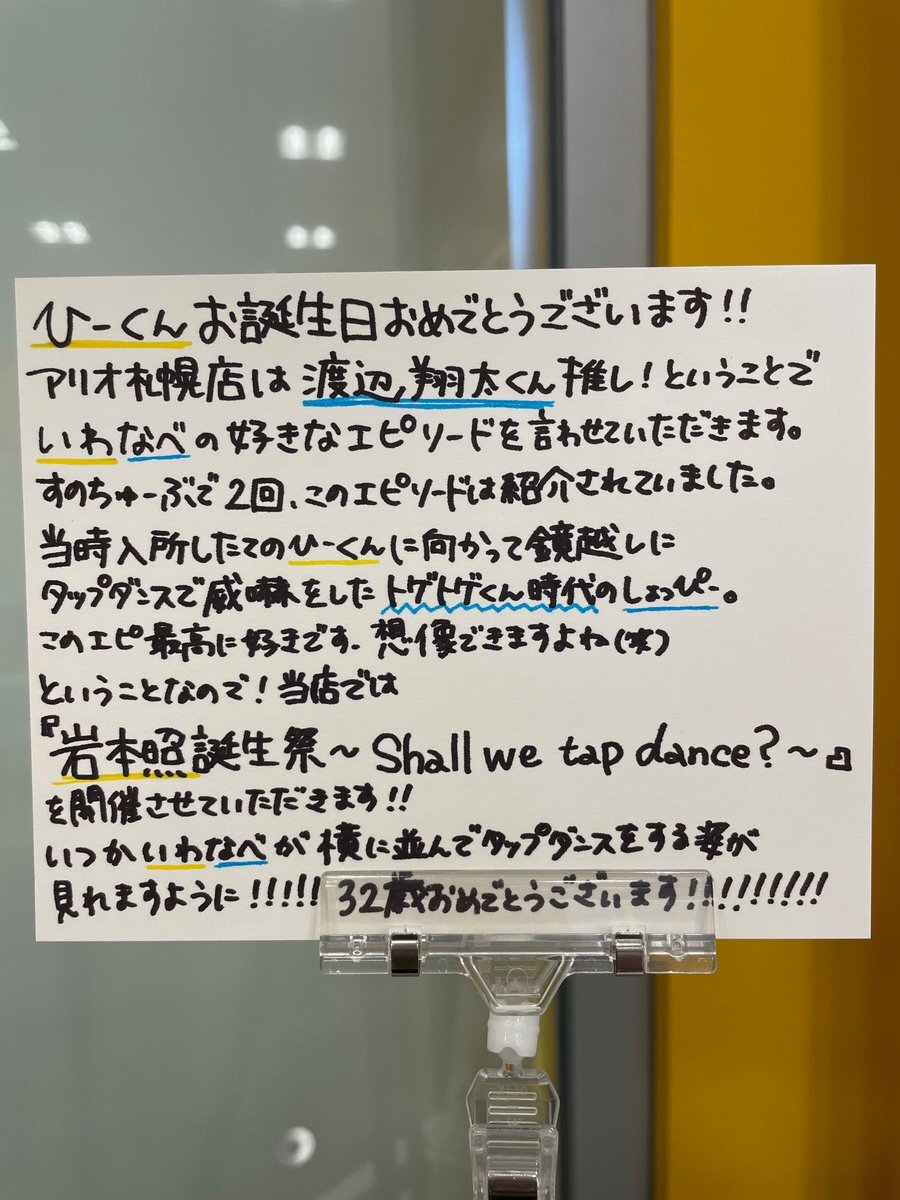 ひーくんお誕生日おめでとうございます!!
アリオ札幌店は渡辺翔太くん推し!ということで
いわなべの好きなエピソードを言わせていただきます。
すのちゅーぶで2回、このエピソードは紹介されていました。
当時入所したてのひーくんに向かって鏡越しに
タップダンスで威嚇をしたトゲトゲくん時代のしょっぴー。
このエピ最高に好きです、想像できますよね(笑)
ということなので!当店では
『岩本照誕生祭~Shall we tap dance?~』
を開催させていただきます!!
いつかいわなべが横に並んでタップダンスをする姿が
見れますように!!!!! 32歳おめでとうございます!!!!!!!!!